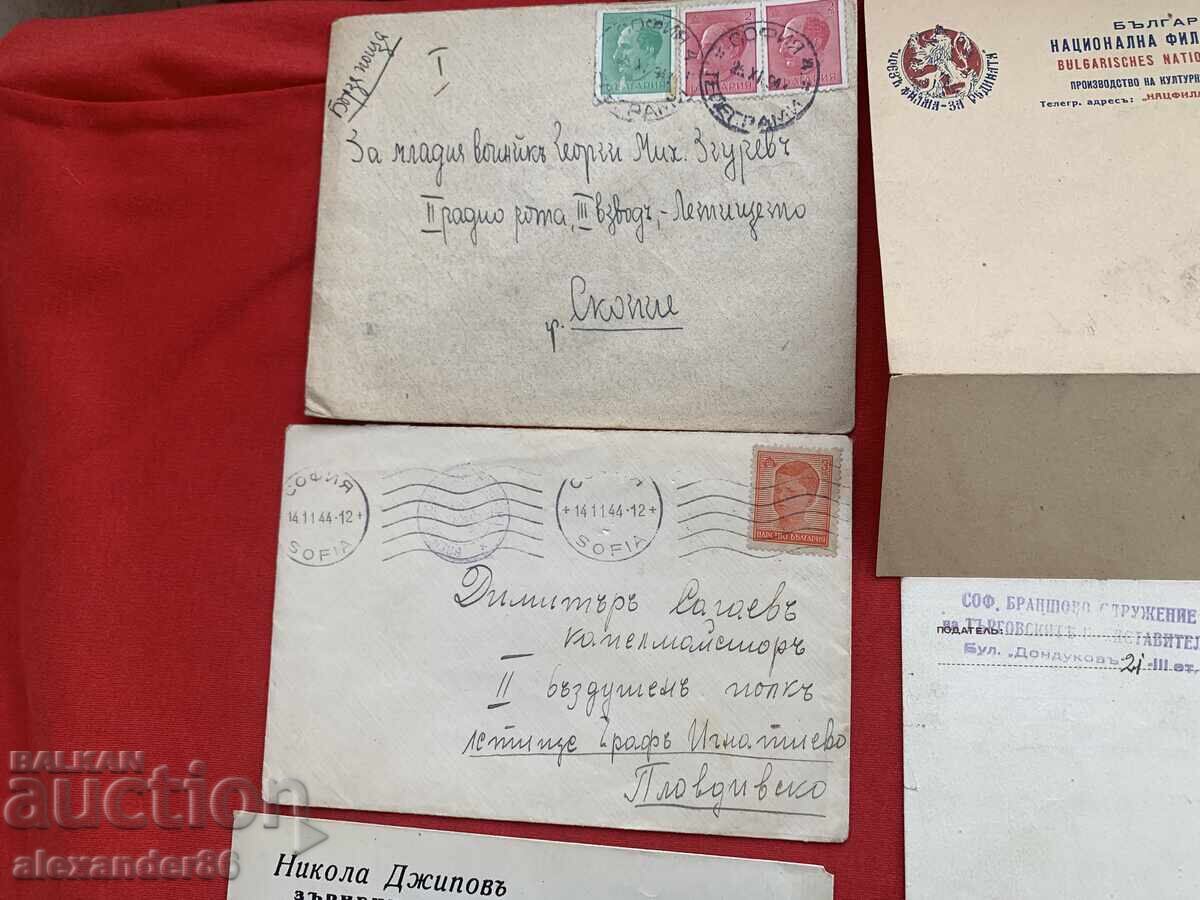 Бърза поща
I
БЪЛГАРИЯ
2
БЪЛГАРИЯ
2
БЪЛГАРИЯ
СОФИЯ
ТЕЛЕГРАМИ
За младия войникъ Георги Мих. Згуревъ
II радио рота, III взводъ, - Летището
гр. Скопие
БЪЛГАР
НАЦИОНАЛНА ФИЛ
BULGARISCHES NATIO
ПРОИЗВОДСТВО НА КУЛТУРН
Телегр. адресъ: "НАЦФИЛМ
ФИЛМА-ЗА РОДИНАТА
СОФИЯ
14.11.44-12
SOFIA
14.11.44-12
SOFIA
3
ЦАРСТВО БЪЛГАРИЯ
Димитъръ Сагаевъ
капелмайсторъ
II въздушенъ полкъ
летище Графъ Игнатиево
Пловдивско
СОФ. БРАНШОВО СДРУЖЕНИЕ
на ТЪРГОВСКИТЕ ПРЕДСТАВИТЕЛ
ПОДАТЕЛЬ:
Бул. „Дондуковъ 21-III ет.
Никола Джиповъ
BALKAN
auction
alexander86